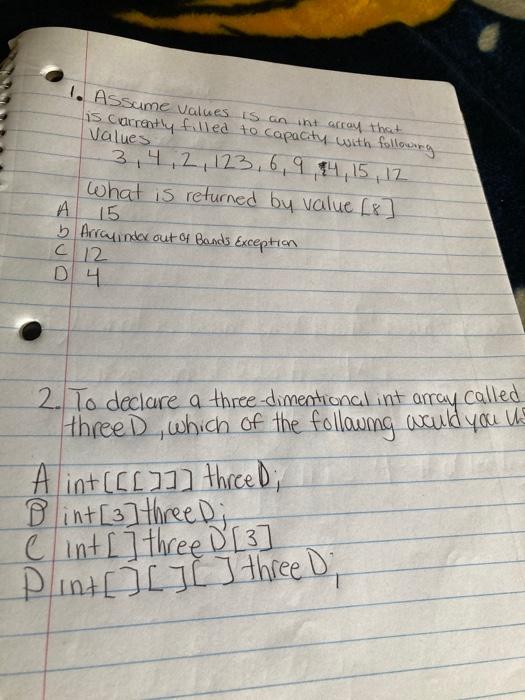 1. Assume values is an int array that
is currently filled to capacity with following
values
3, 4, 2, 123, 6, 9, 4, 15, 12
what is returned by value [8]
A 15
b Arrayindex out of Bands Exception
C 12
D 4
2. To declare a three-dimentional int array called
threeD, which of the following would you us
A int[[[]]] threeD;
B int[3] threeD;
C int[] threeD[3]
D int[][][] threeD;